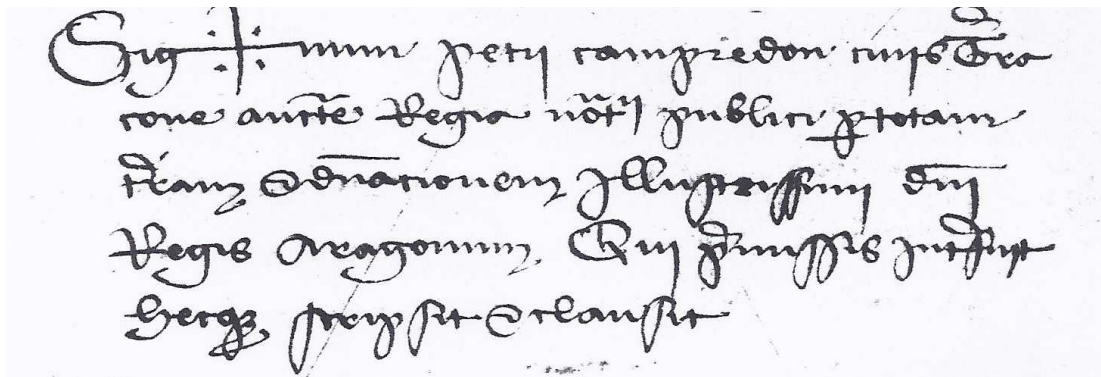 Sig num petri campredon civis Terra
cone auctte Regia nots publici per totam
terram & dnacionem Illustrissimi dni
Regis Aragonum Qui premissis interfuit
hecque scripsit & clausit